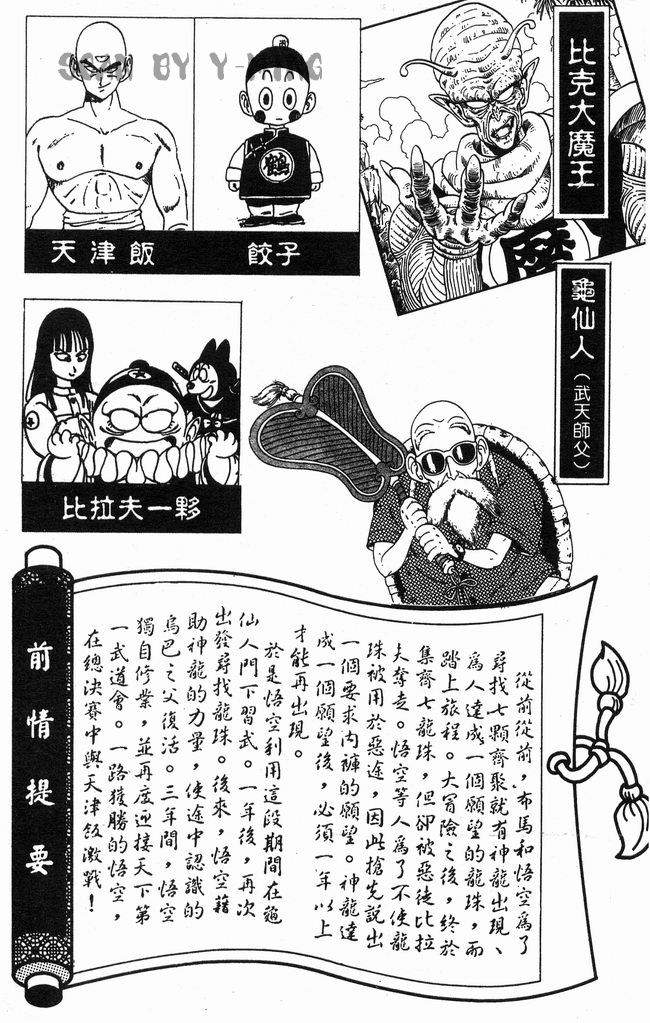 SCAN BY Y-KING
鶴
天津飯
餃子
比克大魔王
魔
龜仙人（武天師父）
比拉夫一夥
前情提要
從前從前，布馬和悟空爲了
尋找七顆齊聚就有神龍出現、
爲人達成一個願望的龍珠，而
踏上旅程。大冒險之後，終於
集齊七龍珠，但卻被惡徒比拉
夫奪走。悟空等人爲了不使龍
珠被用於惡途，因此搶先說出
一個要求內褲的願望。神龍達
成一個願望後，必須一年以上
才能再出現。
於是悟空利用這段期間在龜
仙人門下習武。一年後，再次
出發尋找龍珠。後來，悟空藉
助神龍的力量，使途中認識的
烏巴之父復活。三年間，悟空
獨自修業，並再度迎接天下第
一武道會。一路獲勝的悟空，
在總決賽中與天津飯激戰！